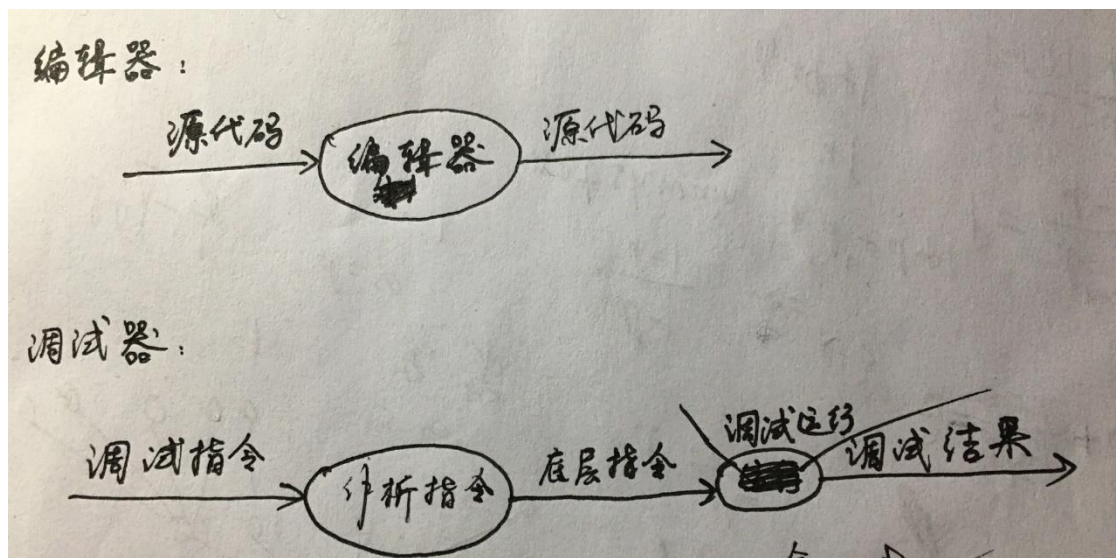 编辑器：
源代码 编辑器 源代码
调试器：
调试指令 分析指令 底层指令 调试运行 调试结果